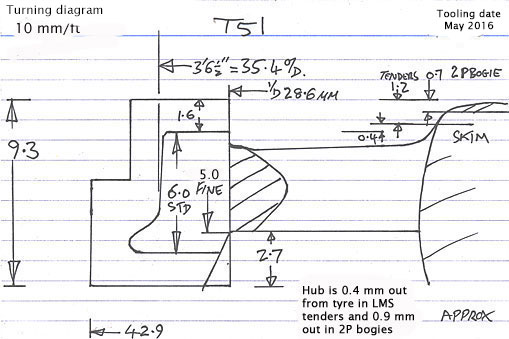 Turning diagram
10 mm/ft
T51
Tooling date
May 2016
3'6½"=35.4 O/D.
I/D 28.6 MM
TENDERS
1.2
0.7 2P BOGIE
1.6
0.4
SKIM
9.3
6.0
STD
5.0
FINE
2.7
42.9
Hub is 0.4 mm out
from tyre in LMS
tenders and 0.9 mm
out in 2P bogies
APPROX